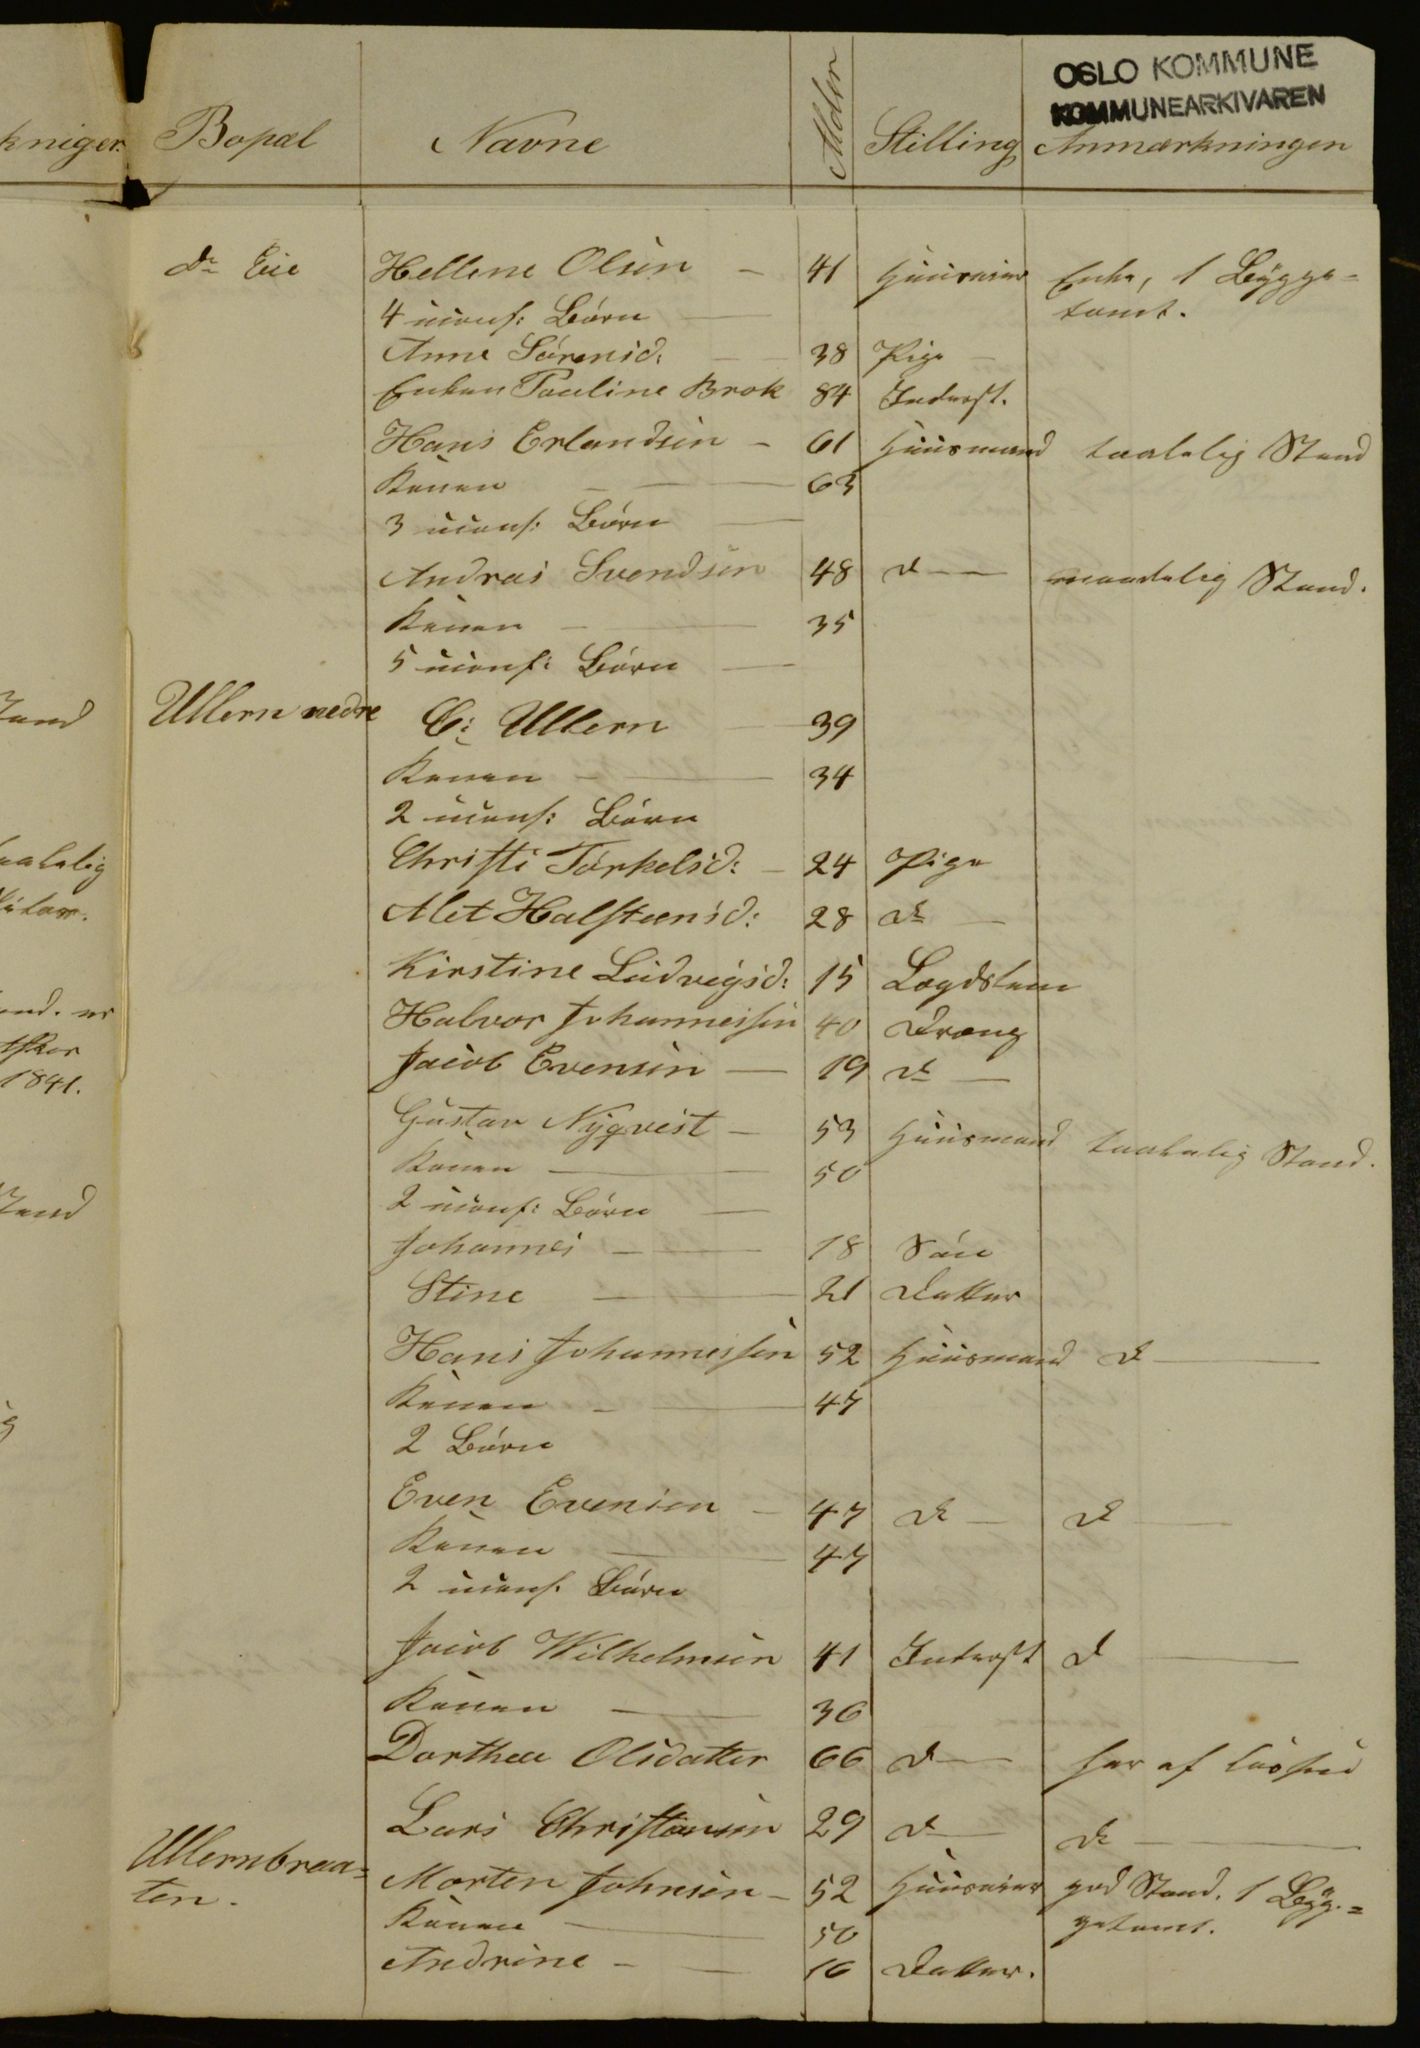 OSLO KOMMUNE
KOMMUNEARKIVAREN
kninger. Bopæl Navne Alder Stilling Anmærkningen
do Eie Hellene Olsen — 41 Huuseier Enke, 1 Bygge=
4 uconf: Børn — tomt.
Anne Sörensd: — 38 Pige —
Enken Pauline Brok 84 Inderst.
Hans Erlandsen — 61 Huusmand taalelig Stand
Konen — 63
3 uconf: Børn —
Andreas Svendsen 48 do — maadelig Stand.
Konen — 35
5 uconf: Børn —
Stand Ullern nedre C: Ullern — 39
Konen — 34
2 uconf: Børn
taalelig Christi Törkelsd: — 24 Pige
Alet Halsteensd: 28 do —
Kirstine Ludvigsd: 15 Lægdslem
Halvor Johannessen 40 Dreng
Jacob Evensen — 19 do —
1841.
Gustav Nyqvist — 53 Huusmand taalelig Stand.
Konen — 50
2 uconf: Børn —
Stand Johannes — 18 Søn
Stine — 21 Datter
Hans Johannessen 52 Huusmand do —
Konen — 47
2 Børn
Even Evensen — 47 do — do —
Konen — 47
2 uconf. Børn
Jacob Wilhelmsen 41 Inderst do —
Konen — 36
Dorthea Olsdatter 66 do — har af
Lars Christiansen 29 do — do —
Ullernbraa= Morten Johnsen — 52 Huuseier god Stand. 1 Byg=
ten. Konen — 50 getomt.
Andrine — 16 Datter.